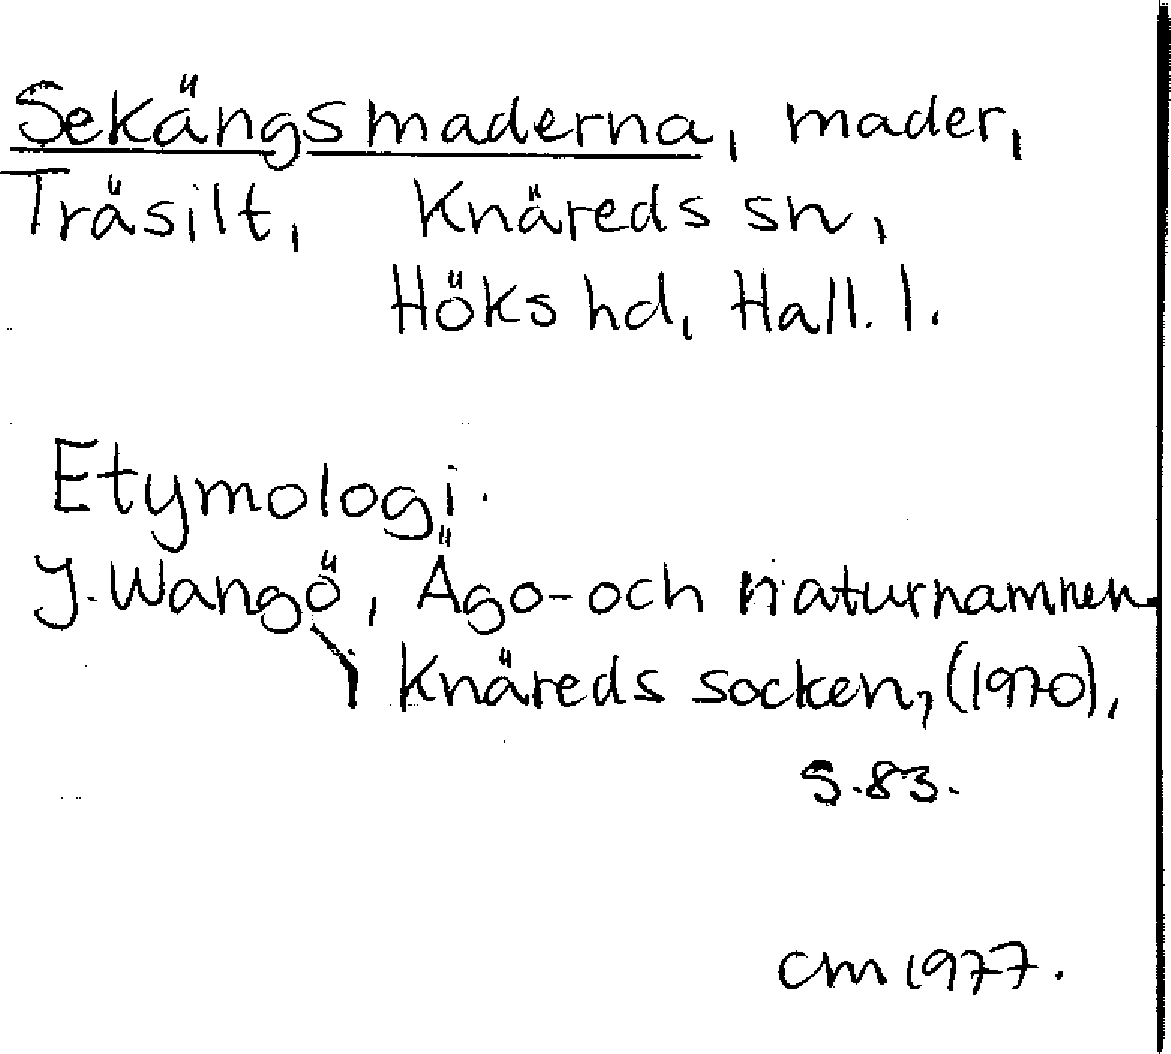 Sekängsmaderna, mader,
Träsilt, Knäreds sn,
Höks hd, Hall. l.
Etymologi.
J. Wangö, Ägo- och naturnamnen
i Knäreds socken, (1970),
s. 83.
CM 1977.